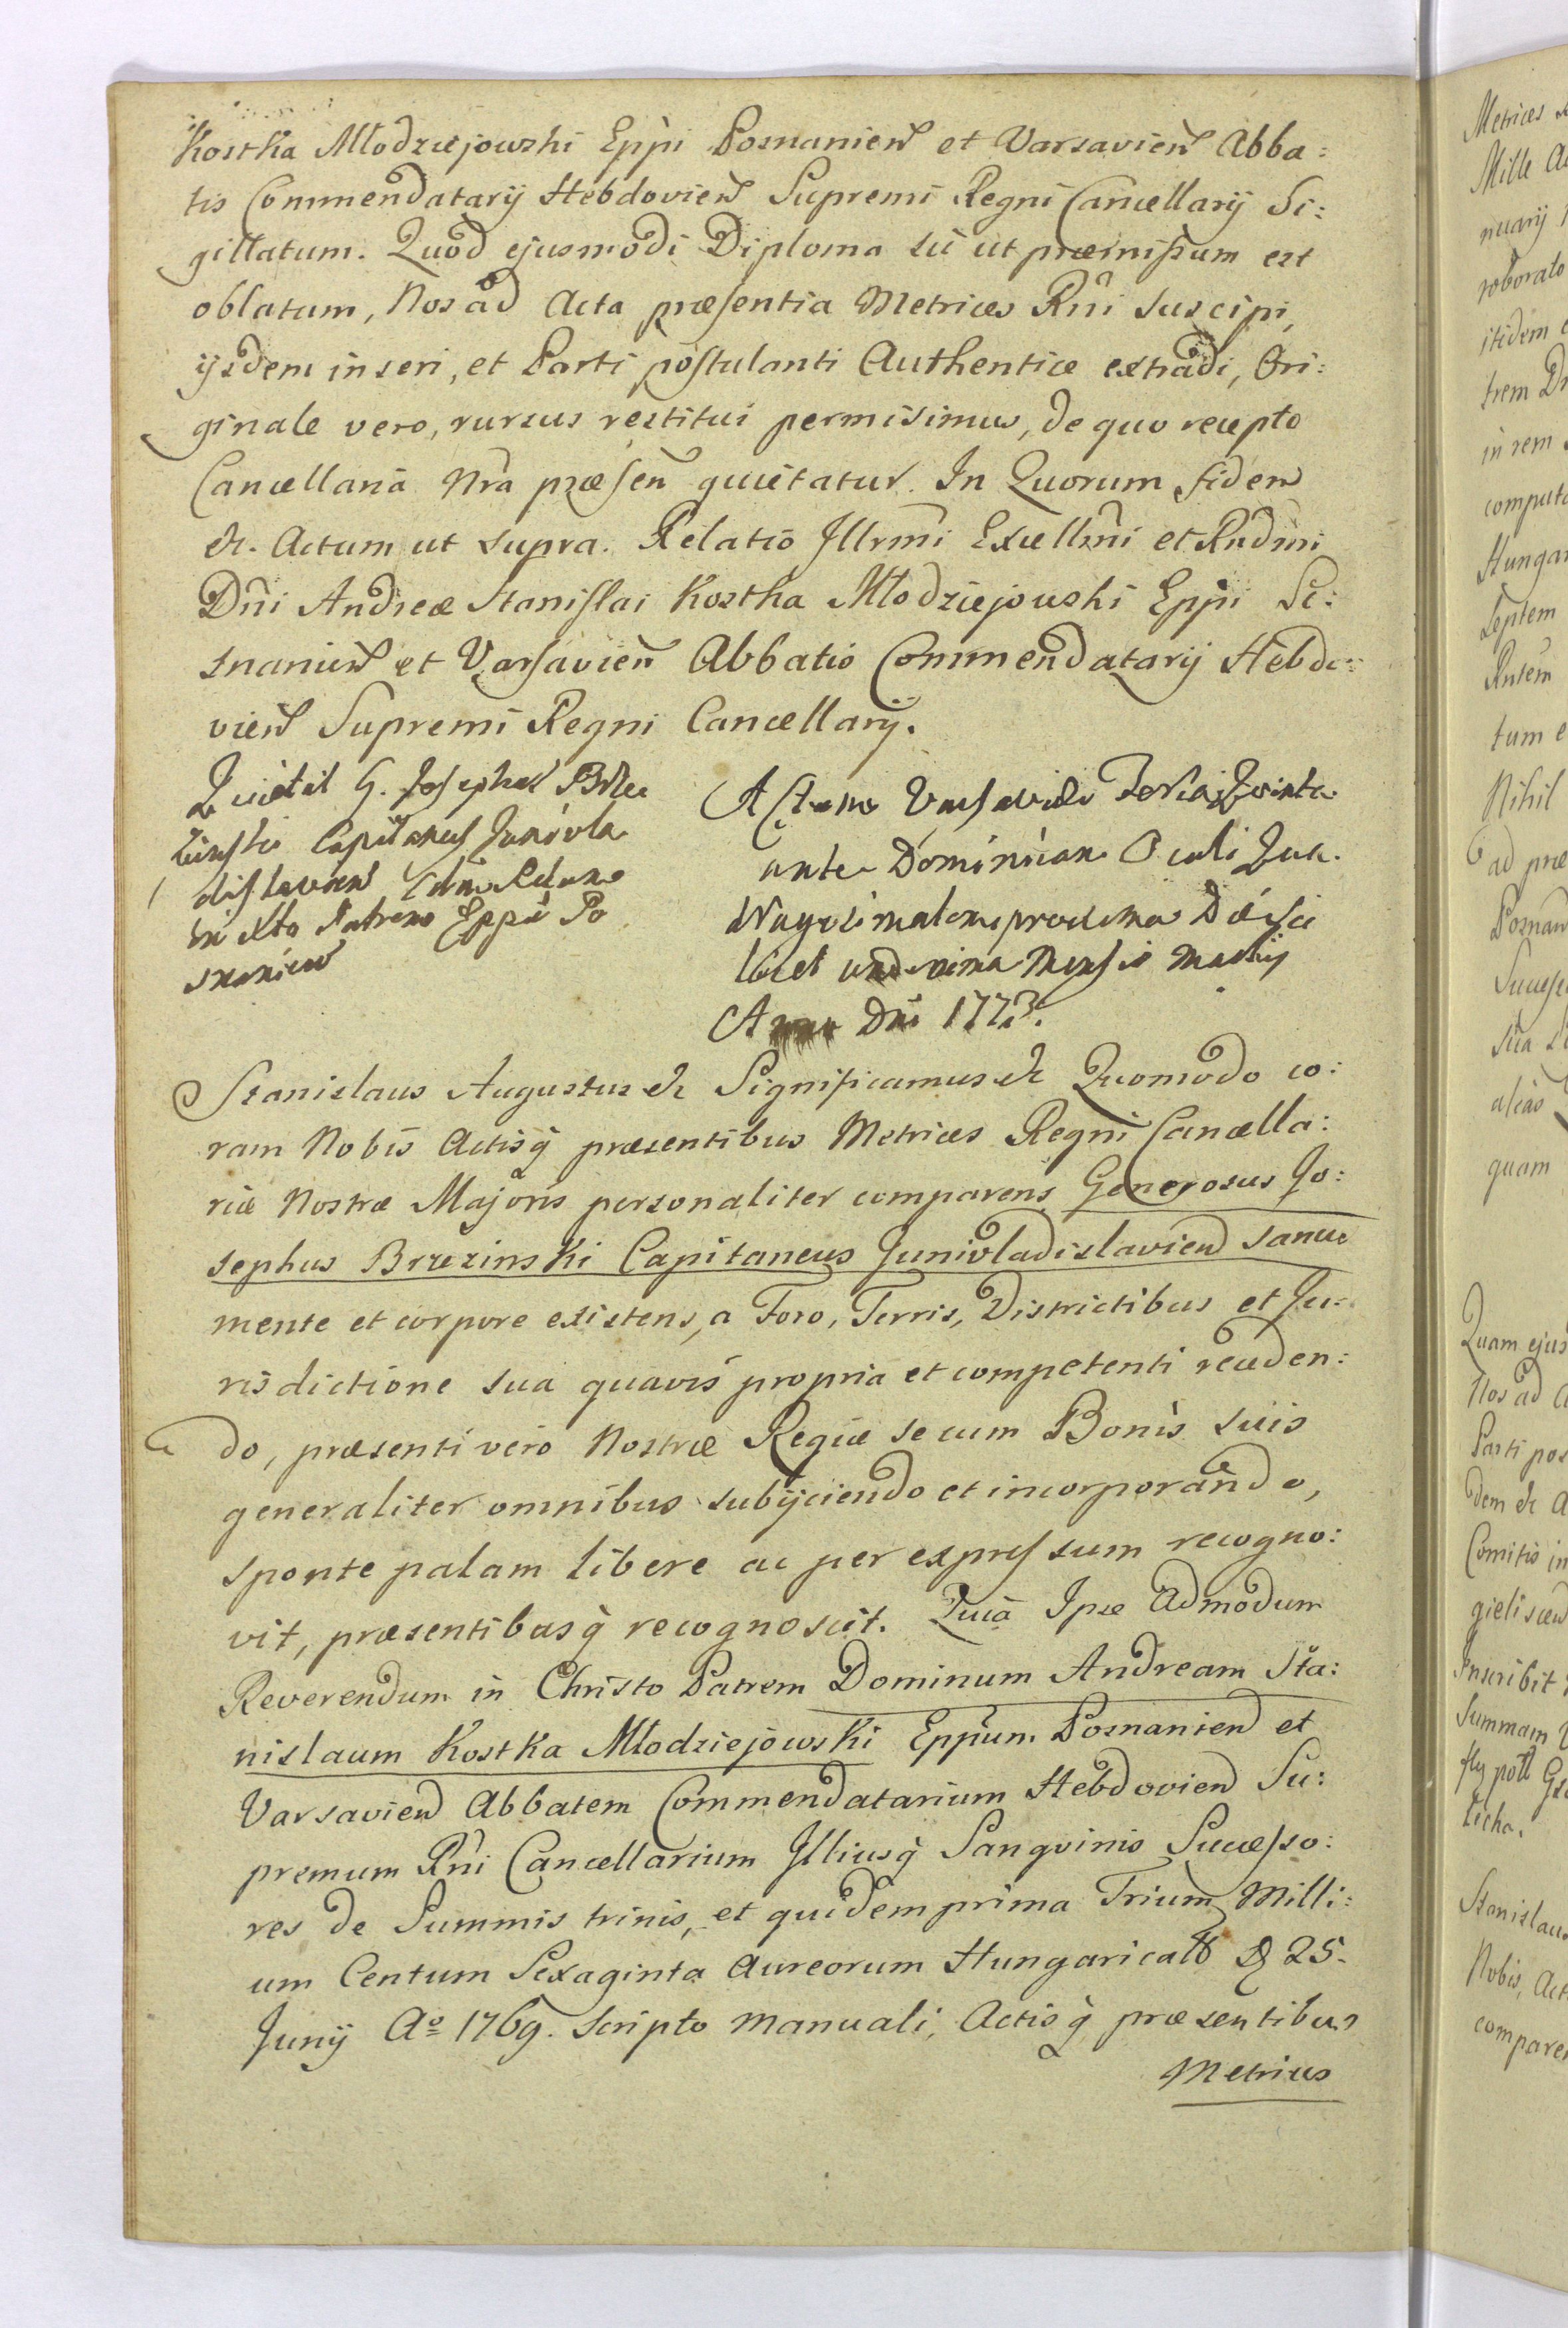 Kostka Młodziejowski Eppi Posnanien et Varsavien Abba:
tis Commendatarij Hebdovien Supremi Regni Cancellarij Si:
gillatum. Quod ejusmodi Diploma sic ut præmissum est
oblatum, Nos ad Acta præsentia Metrices Rni suscipi,
ijsdem inseri, et Parti postulanti Authentice extradi, Ori:
ginale vero, rursus restitui permisimus, de quo recepto
Cancellaria Nra præsen quietatur. In Quorum fidem
&c. Actum ut supra. Relatio Illrmi Excellmi et Rndmi
Dni Andreæ Stanislai Kostka Młodziejowski Eppi Po:
snanien et Varsavien Abbatis Commendatarij Hebdo:
vien Supremi Regni Cancellarij.
Quietat G. Josephus Brze
zinski Capitaneus Junivla
dislavien Adm Rdum
in Xto Patrem Eppum Po
snanien
Actum Varsaviæ Feria Quinta
ante Dominicam Oculi Qua
dragesimalem proxima Die sci
licet undecima Mensis Martij
Anno Dni 1773.
Stanislaus Augustus &c Significamus &c Quomodo co:
ram Nobis Actisq præsentibus Metrices Regni Cancella:
riæ Nostræ Majoris personaliter comparens Generosus Jo:
sephus Brzezinski Capitaneus Junivladislavien sanus
mente et corpore existens, a Foro, Terris, Districtibus et Ju:
risdictione sua quavis propria et competenti receden:
do, præsenti vero Nostræ Regiæ se cum Bonis suis
generaliter omnibus subijciendo et incorporando,
sponte palam libere ac per expressum recogno:
vit, præsentibusq recognoscit. Quia Ipse Admodum
Reverendum in Christo Patrem Dominum Andream Sta:
nislaum Kostka Młodziejowski Eppum Posnanien et
Varsavien Abbatem Commendatarium Hebdovien Su:
premum Rni Cancellarium Illiusq Sangvinis Successo:
res de Summis trinis, et quidem prima Trium Milli:
um Centum Sexaginta Aureorum Hungaricall D 25.
Junij Ao 1769. Scripto Manuali, Actisq præsentibus
Metrices
Metrices
Mille
nuarij
roborato
itidem
trem
in rem
computa
Hungar
Septem
tum e
Nihil
ad præ
Posnan
Success
sua
alias
quam
Quam ejus
Nos ad
Parti pos
dem &c A
Comitis in
Inscribit
Summam
Stanislau
Nobis, Act
comparen